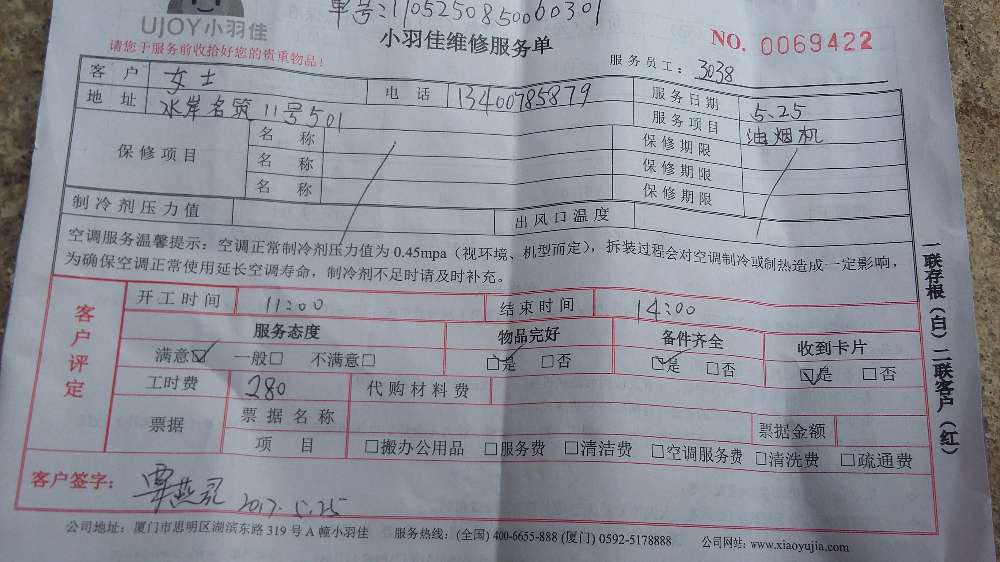 单号:110525085060301
UJOY小羽佳
小羽佳维修服务单
NO. 0069422
请您于服务前收拾好您的贵重物品!
服务员工: 3038
客户 女士 电话 13400785879 服务日期 5.25
地址 水岸名筑11号501 服务项目 油烟机
保修项目 名称 保修期限
名称 保修期限
名称 保修期限
制冷剂压力值 出风口温度
空调服务温馨提示:空调正常制冷剂压力值为 0.45mpa(视环境、机型而定),拆装过程会对空调制冷或制热造成一定影响,
为确保空调正常使用延长空调寿命,制冷剂不足时请及时补充。
客户评定
开工时间 11:00 结束时间 14:00
服务态度 物品完好 备件齐全 收到卡片
满意☑ 一般□ 不满意□ ☑是 □否 ☑是 □否 ☑是 □否
工时费 280 代购材料费
票据 票据名称 票据金额
项目 □搬办公用品 □服务费 □清洁费 □空调服务费 □清洗费 □疏通费
客户签字: 2017.5.25
一联存根(白)二联客户(红)
公司地址:厦门市思明区湖滨东路 319 号 A 幢小羽佳 服务热线:(全国) 400-6655-888 (厦门) 0592-5178888 公司网站:www.xiaoyujia.com